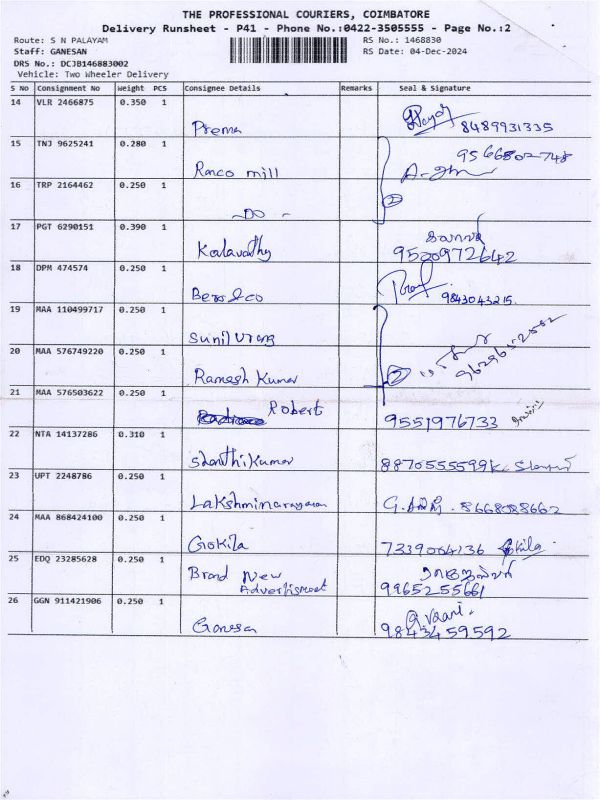 THE PROFESSIONAL COURIERS, COIMBATORE
Delivery Runsheet - P41 - Phone No.:0422-3505555 - Page No.:2
Route: S N PALAYAM
RS No.: 1468830
Staff: GANESAN
RS Date: 04-Dec-2024
DRS No.: DCJB146883002
Vehicle: Two Wheeler Delivery
S No Consignment No Weight PCS Consignee Details Remarks Seal & Signature
14 VLR 2466875 0.350 1
Prema 8489931335
15 TNJ 9625241 0.280 1
Ranco mill 9566802748
16 TRP 2164462 0.250 1
-DO- 2
17 PGT 6290151 0.390 1
Kalavathy 9520972642
18 DPM 474574 0.250 1
Bero & co 9843043215
19 MAA 110499717 0.250 1
Sunil
20 MAA 576749220 0.250 1
Ramesh Kumar 2 9629652552
21 MAA 576503622 0.250 1
Robert 9551976733
22 NTA 14137286 0.310 1
Shanthi Kumar 8870555599
23 UPT 2248786 0.250 1
Lakshminarayanan 8668028662
24 MAA 868424100 0.250 1
Gokila 7339064136 Gokila
25 EDQ 23285628 0.250 1
Brand New
Advertisment 9965255661
26 GGN 911421906 0.250 1
G vaani.
Ganesan 9843459592